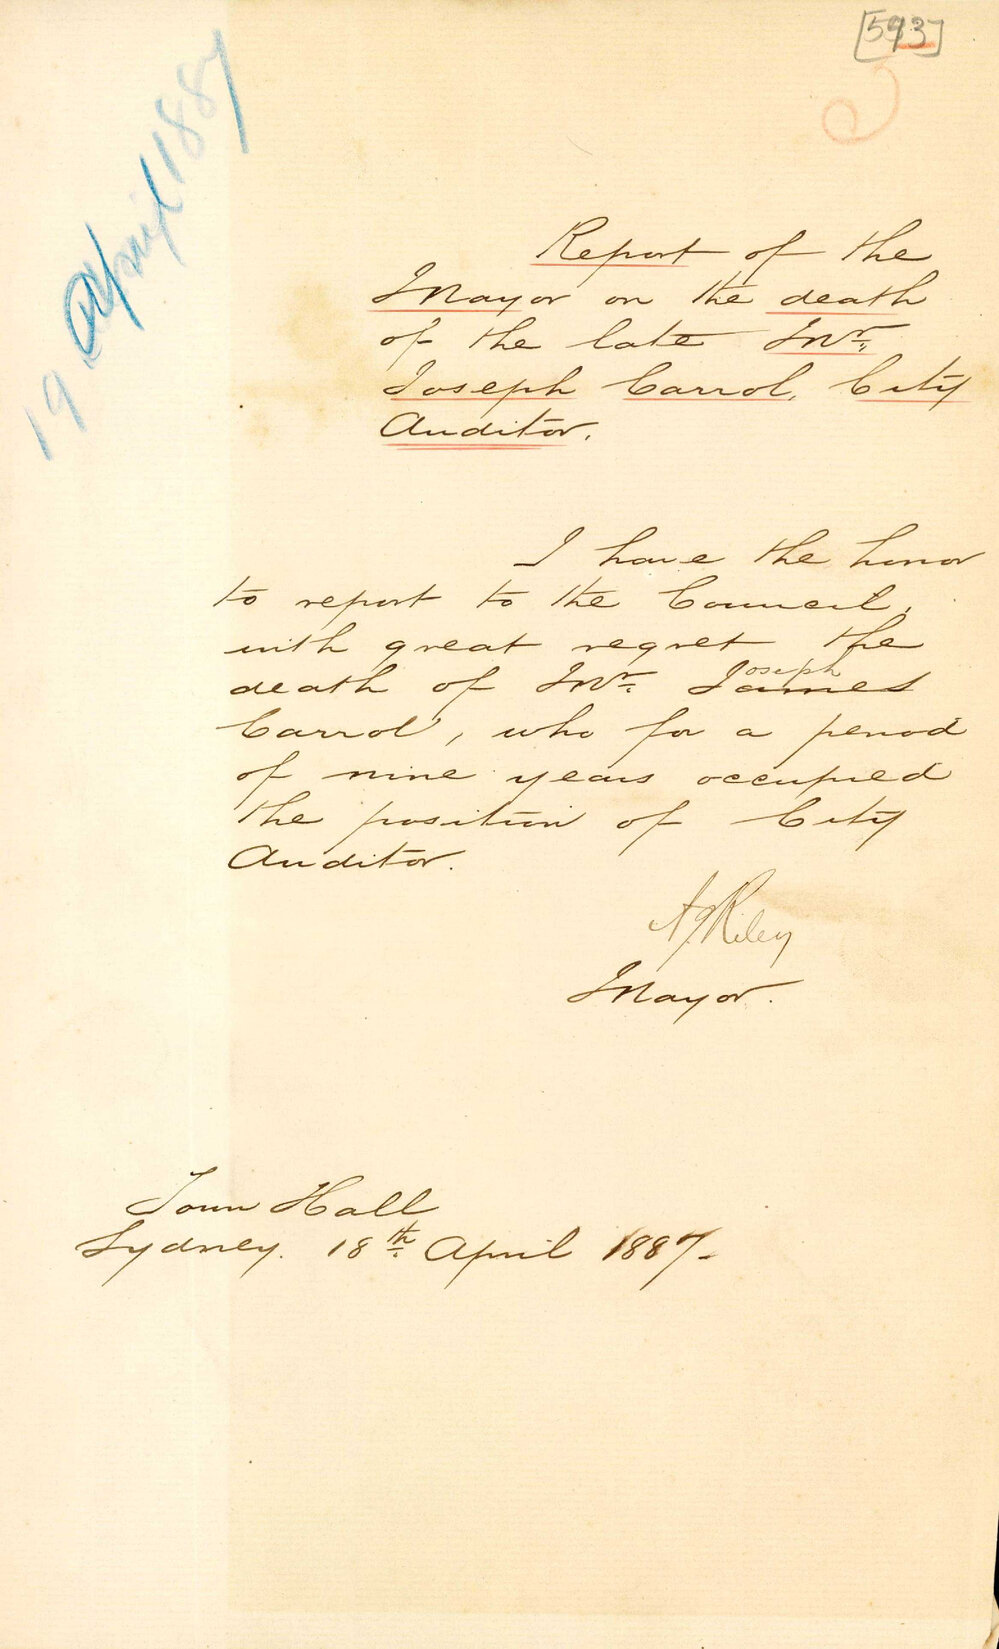 [593]
19 April 1887
Report of the
Mayor on the death
of the late Mr.
Joseph Carrol, City
Auditor.
I have the honor
to report to the Council,
with great regret the
death of Mr. James Joseph
Carrol, who for a period
of nine years occupied
the position of City
Auditor.
A J Riley
Mayor.
Town Hall
Sydney. 18th April 1887-